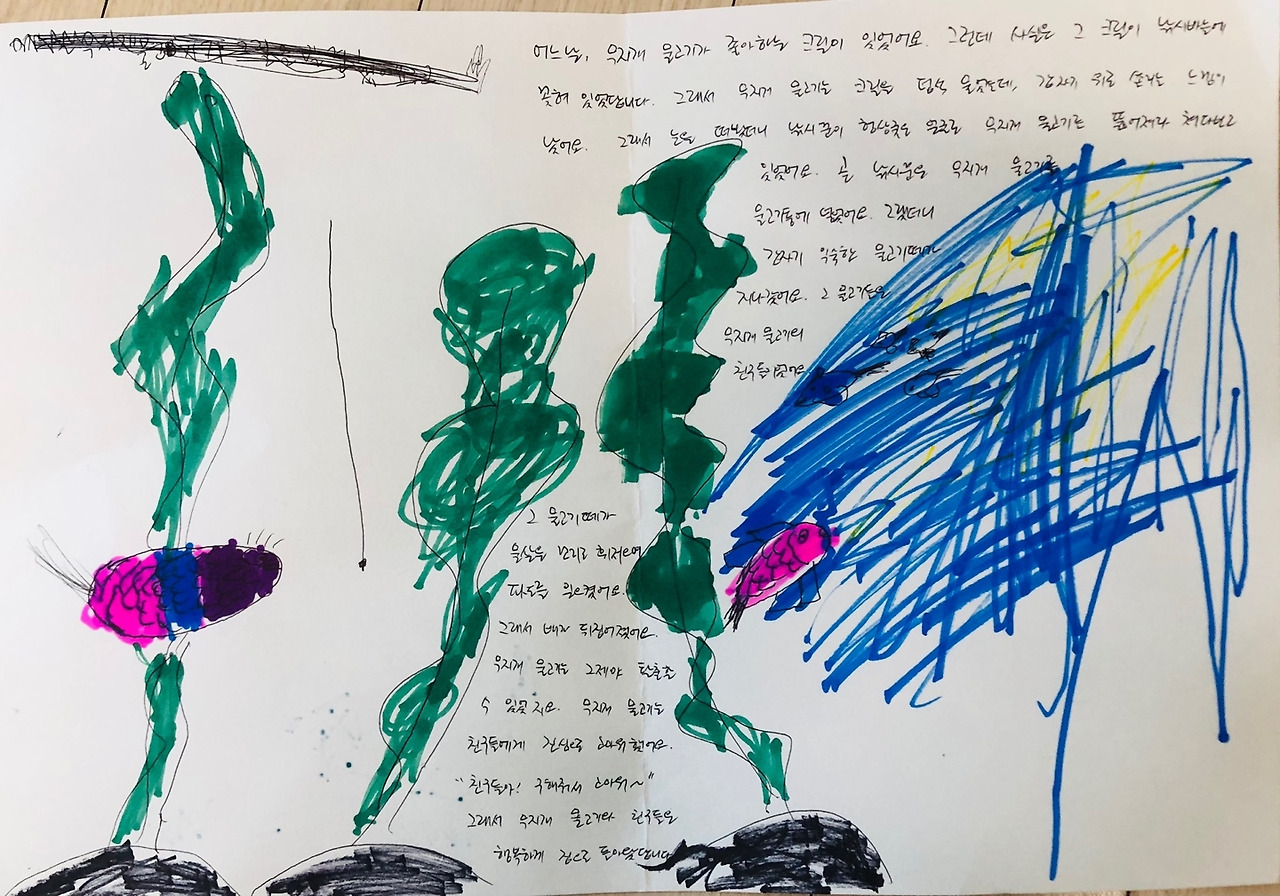 어느날, 무지개 물고기가 좋아하는 크릴이 있었어요. 그런데 사실은 그 크릴이 낚시바늘에
꽂혀 있었답니다. 그래서 무지개 물고기는 크릴을 덥석 물었는데, 갑자기 위로 솟는 느낌이
났어요. 그래서 눈을 떠봤더니 낚시꾼이 험상궂은 얼굴로 무지개 물고기를 뚫어져라 쳐다보고
있었어요. 곧 낚시꾼은 무지개 물고기를
물고기통에 넣었어요. 그랬더니
갑자기 익숙한 물고기떼가
지나갔어요. 그 물고기들은
무지개 물고기의
친구들이었어요.
그 물고기떼가
물살을 꼬리로 휘저으며
파도를 일으켰어요.
그래서 배가 뒤집어졌어요.
무지개 물고기는 그제야 탈출할
수 있었지요. 무지개 물고기는
친구들에게 진심으로 고마워했어요.
"친구들아! 구해줘서 고마워~"
그래서 무지개 물고기와 친구들은
행복하게 집으로 돌아갔답니다